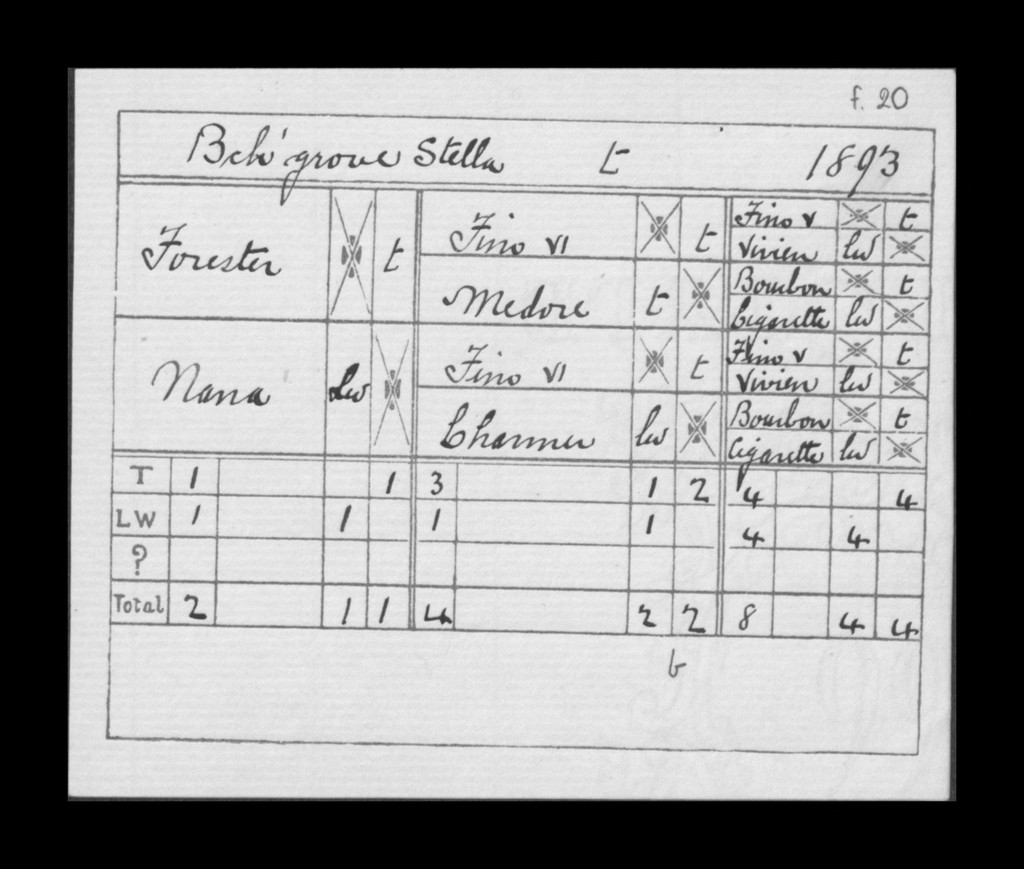 f. 20
Bch' grove Stella t 1893
Forester t
Nana Lw
Fino VI t
Medore t
Fino VI t
Charmer lw
Fino V t
Vivien lw
Bourbon t
Cigarette lw
Fino V t
Vivien lw
Bourbon t
Cigarette lw
T 1 1 3 1 2 4 4
LW 1 1 1 1 4 4
?
Total 2 1 1 4 2 2 8 4 4
b